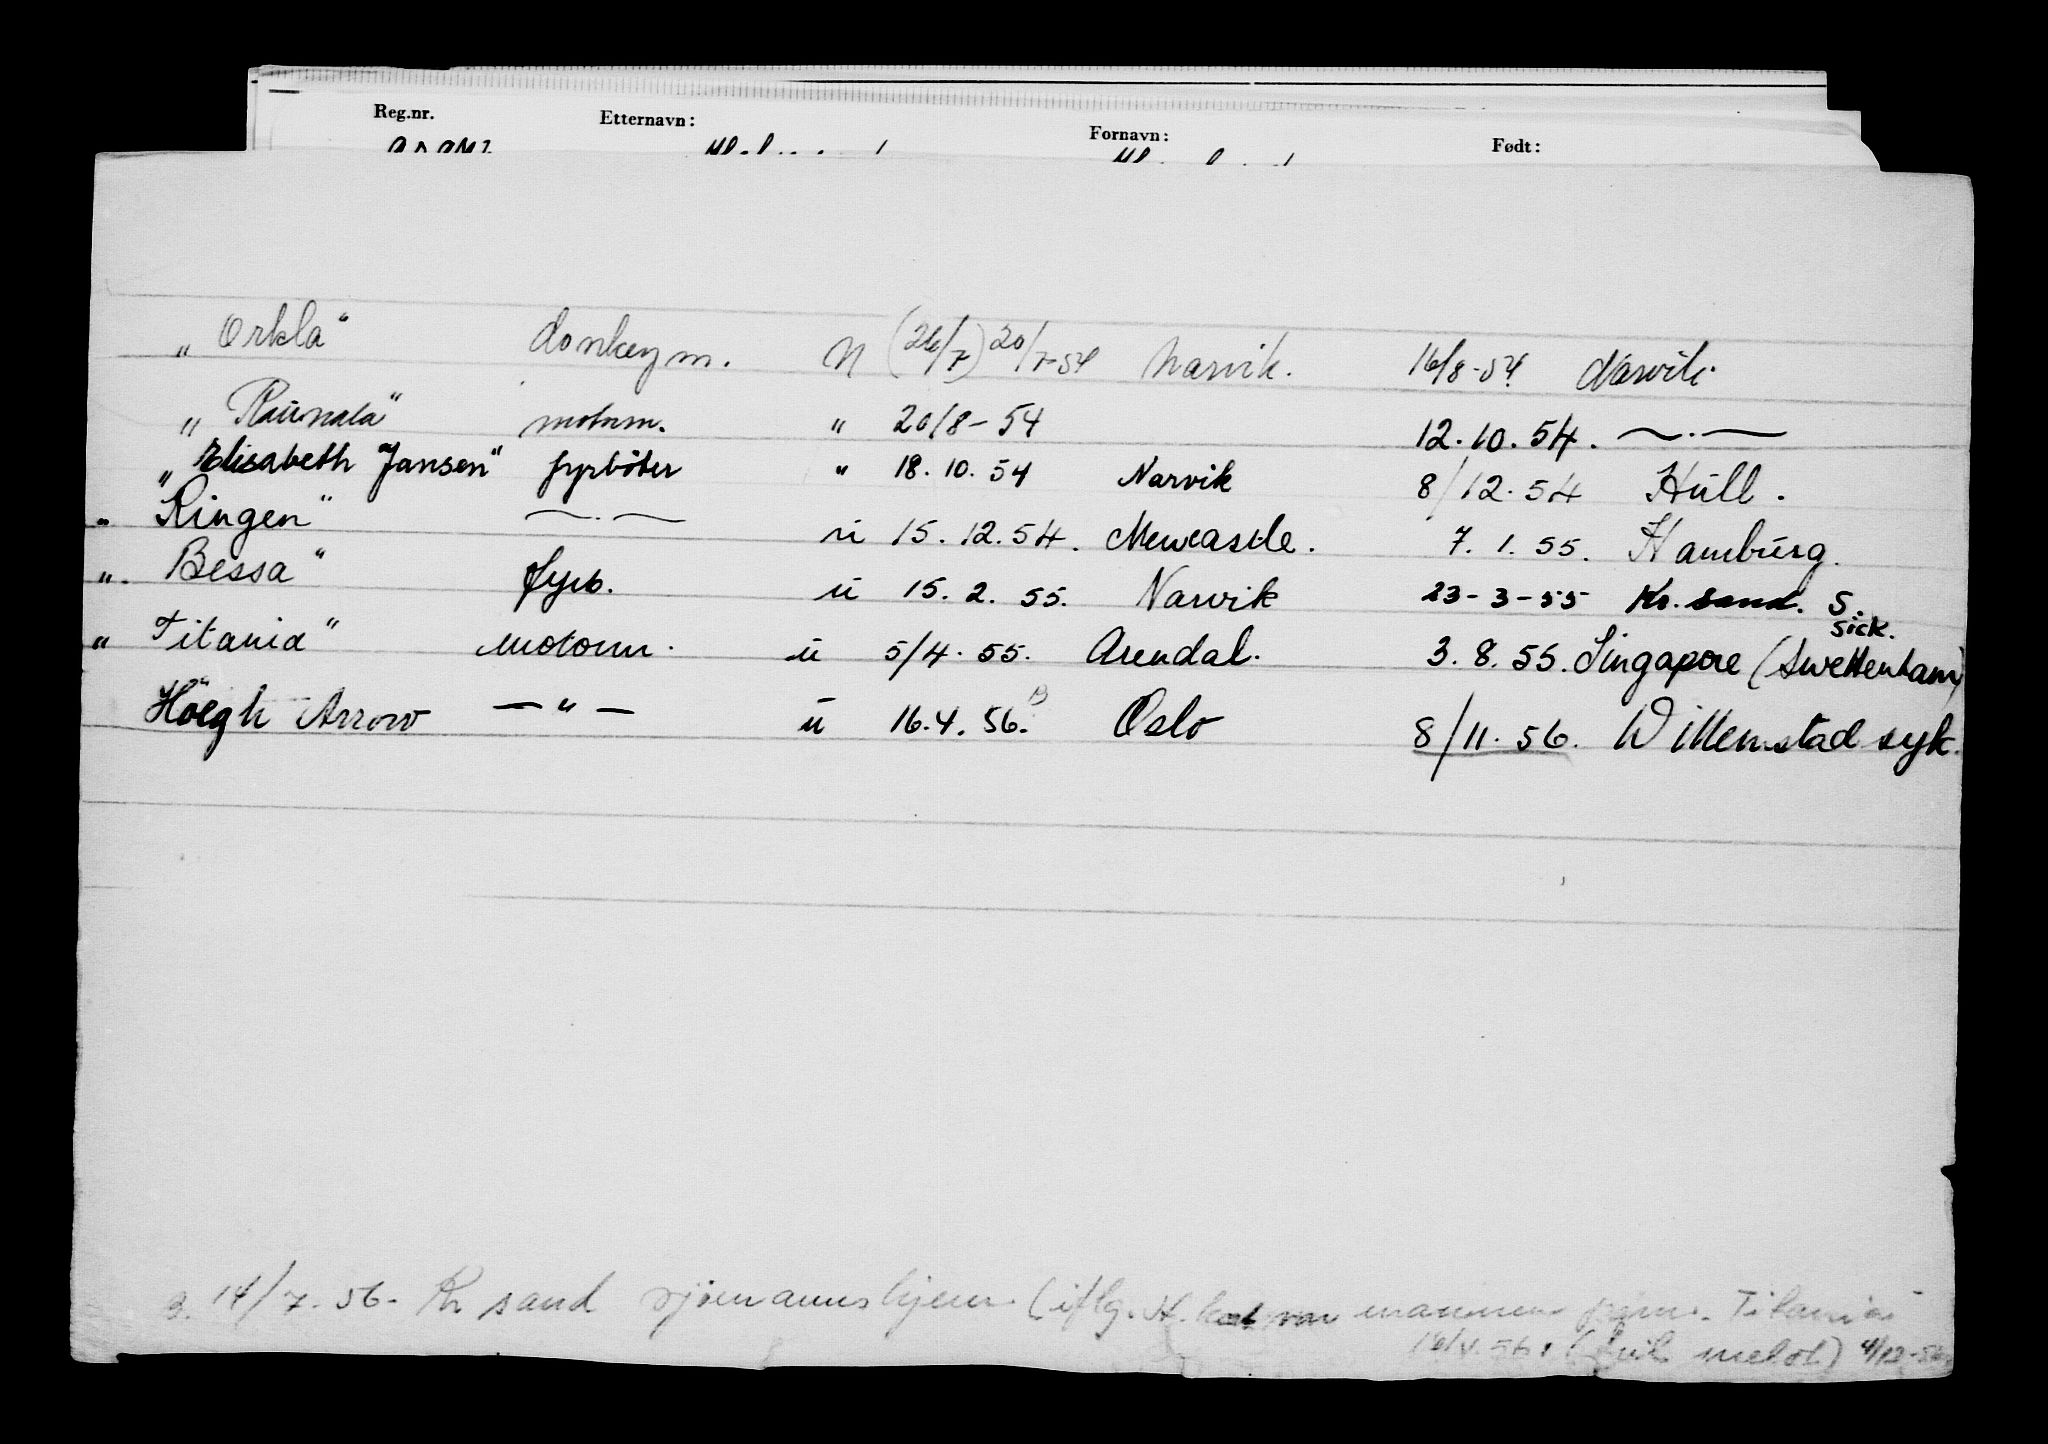 Reg.nr. Etternavn: Fornavn: Født:
„ Orkla" donkeym. N (26/7) 20/7-54 Narvik. 16/8-54 Narvik.
„ motorm. " 20/8-54 12.10.54. —.—
„ Elisabeth Jansen" fyrbøter " 18.10.54 Narvik 8/12.54 Hull.
„ Ringen" —.— u 15.12.54. Newcastle. 7.1.55. Hamburg.
„ Bessa" fyrb. u 15.2.55. Narvik 23-3-55 Kr. sand. S.
„ Titania" motorm. u 5/4.55. Arendal. 3.8.55. Singapore (Swettenham) sick.
Höegh Arrow — " — u 16.4.56. Oslo 8/11.56. Willemstad syk.
14/7-56- Kr sand sjømannshjem (iflg. var mannen Titania
melot) 4/12-56